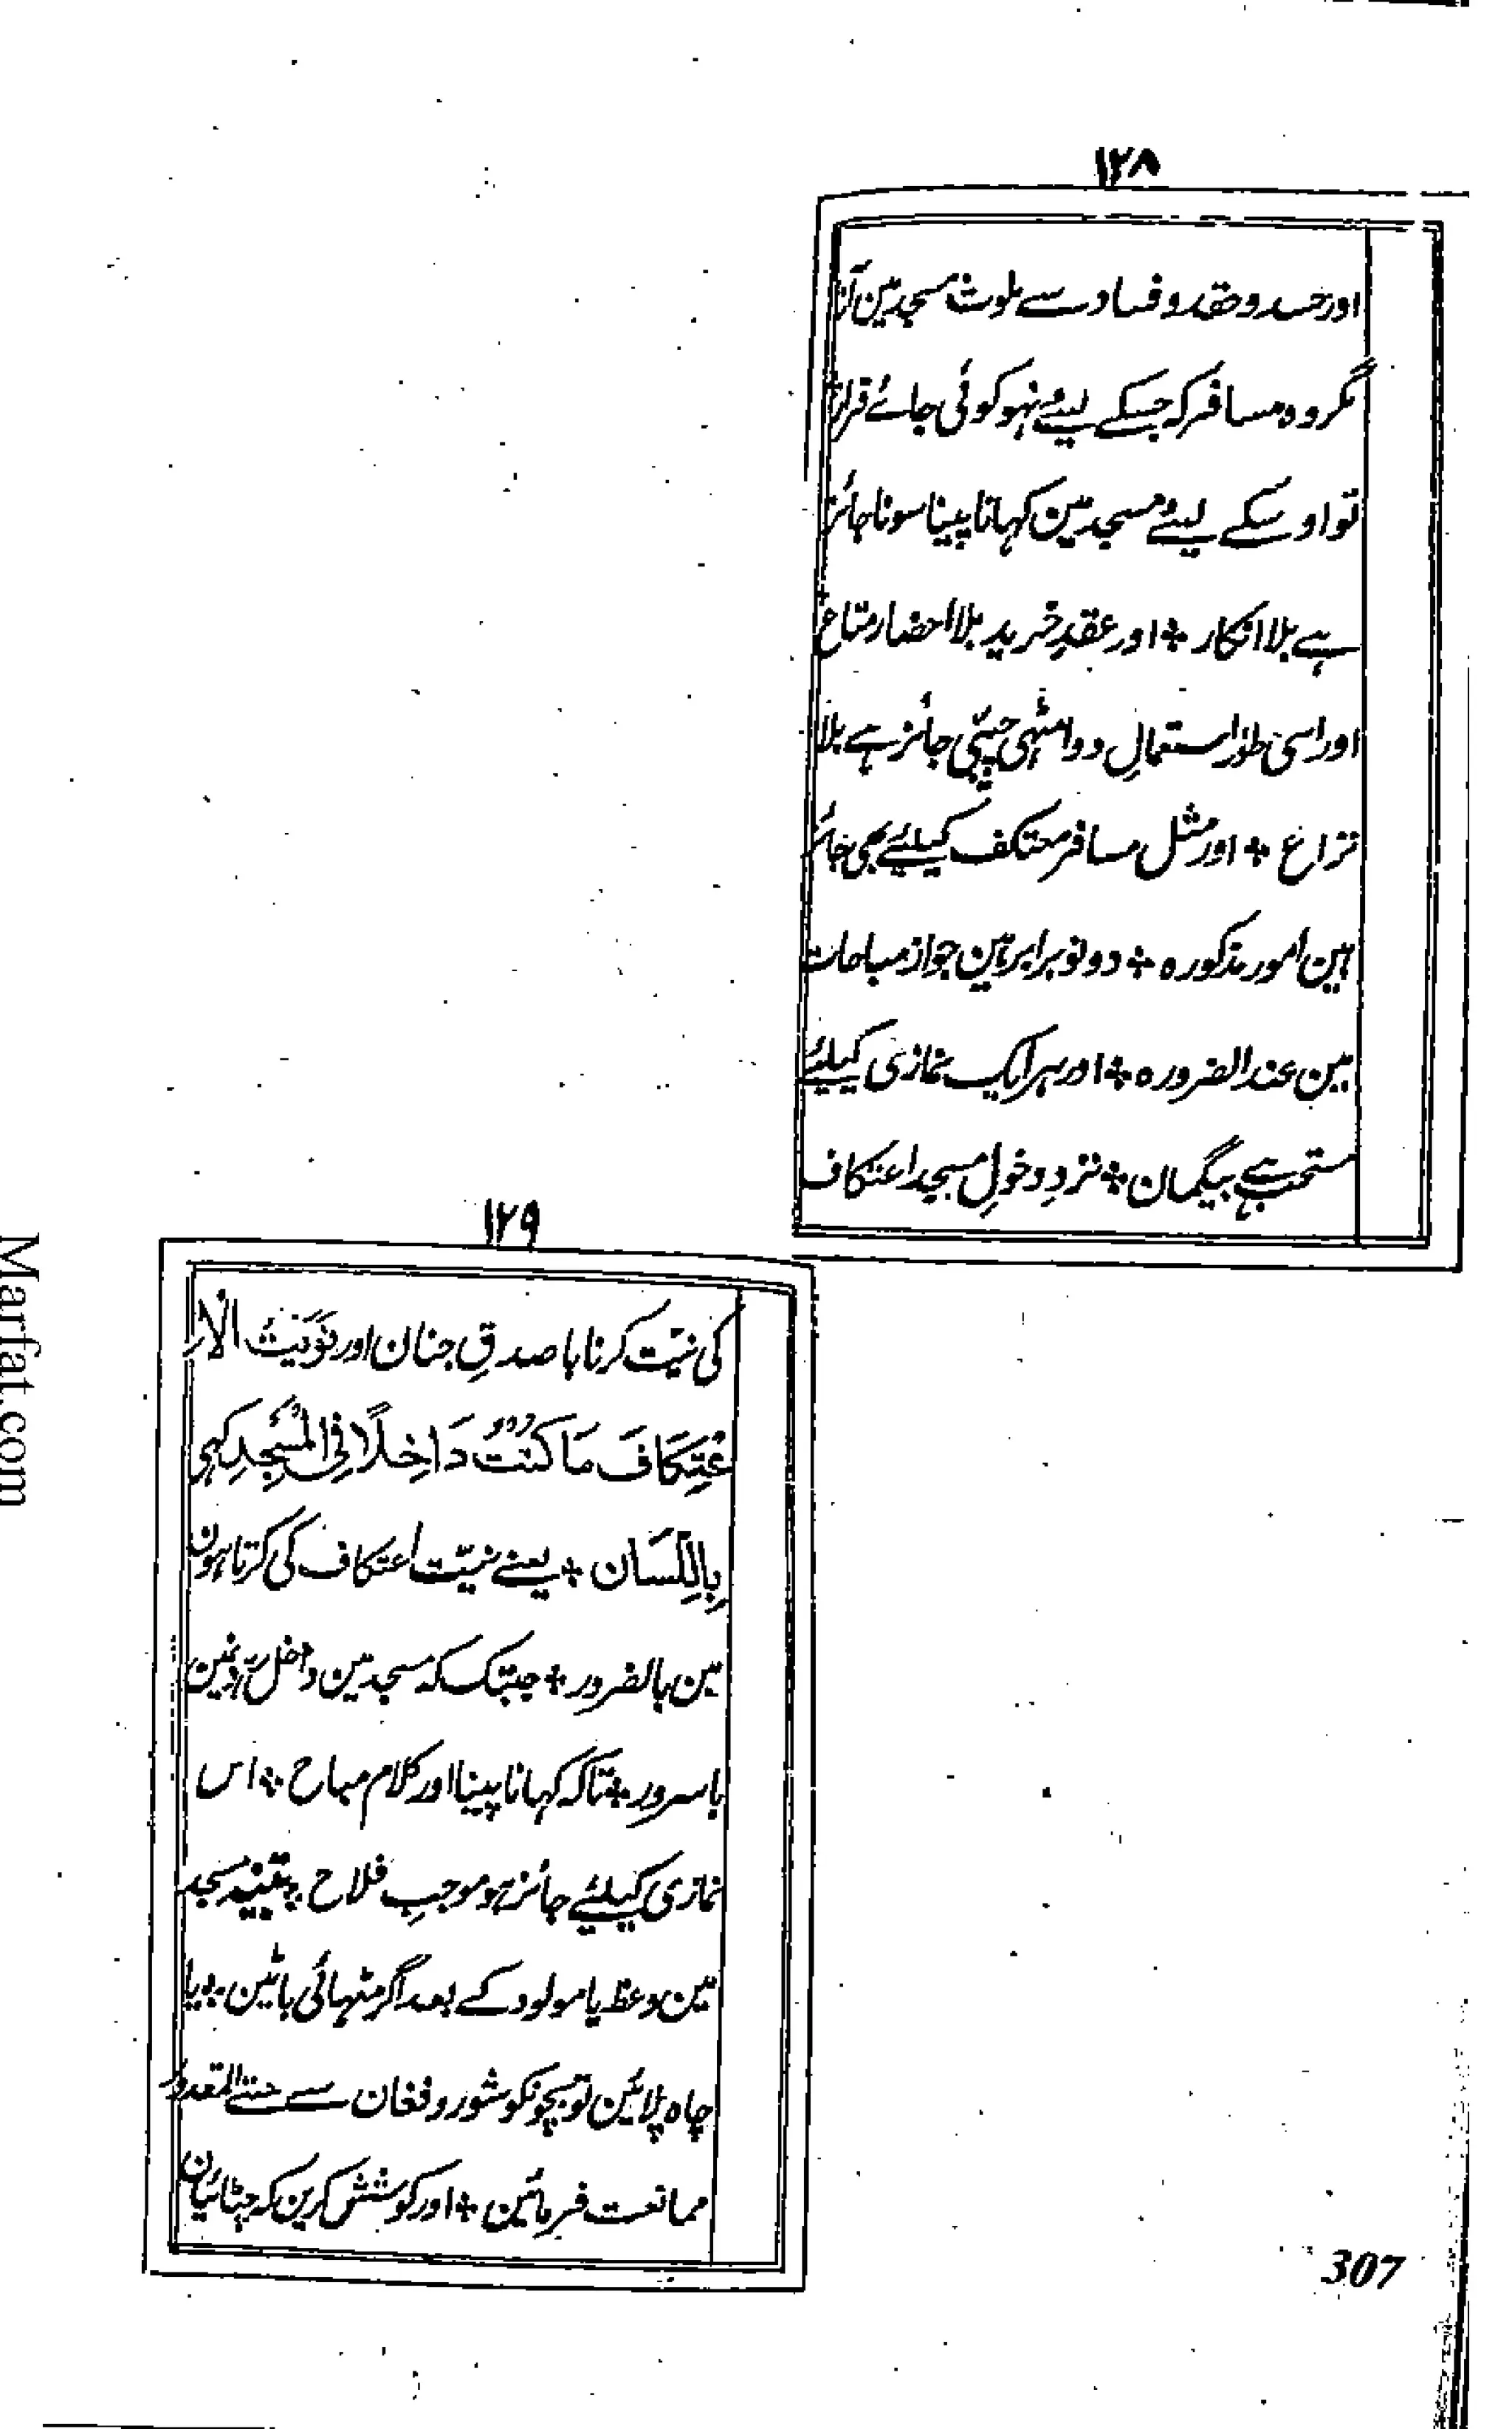 ۱۲۸
اور حسد و حقد و فساد سے ملوث مسجد مین آنا
مگر وہ مسافر کہ جسکے لیئے نہو کوئی جائے قرار
تو اوسکے لیئے مسجد مین کہانا پینا سونا جائز
ہے بلا انکار ÷ اور عقدِ خرید بلا احضار متاع
اور اسی طور استعمالِ دوا میٹھی چیپی جائز ہے بلا
نزاع ÷ اور مثل مسافر معتکف کیلیئے بھی جائز
ہین امور مذکورہ ÷ دونو برابر ہین جواز مباحات
مین عند الضرورہ ÷ اور ہر ایک نمازی کیلیئے
مستحب ہے بیگمان ÷ نزدِ دخولِ مسجد اعتکاف
۱۲۹
کی نیّت کرنا با صدقِ جنان اور نَوَیتُ الاِ
عْتِکَافَ مَا کُنْتُ دَاخِلًا فِی الْمَسْجِدِ کہی
بِاللِّسَان ÷ یعنے نیّت اعتکاف کی کرتا ہون
مین بالضرور ÷ جبتک کہ مسجد مین داخل رہونمین
باسرور ÷ تاکہ کہانا پینا اور کلام مباح ÷ اس
نمازی کیلیئے جائز ہو موجبِ فلاح ÷ تنبیہ مسجد
مین وعظ یا مولود کے بعد اگر مٹہائی بانٹین ÷ یا
چاہ پلائین تو بچونکو شور و فغان سے حتے المقدور
ممانعت فرمائین ÷ اور کوشش کرین کہ چٹائیان
307
Marfat.com